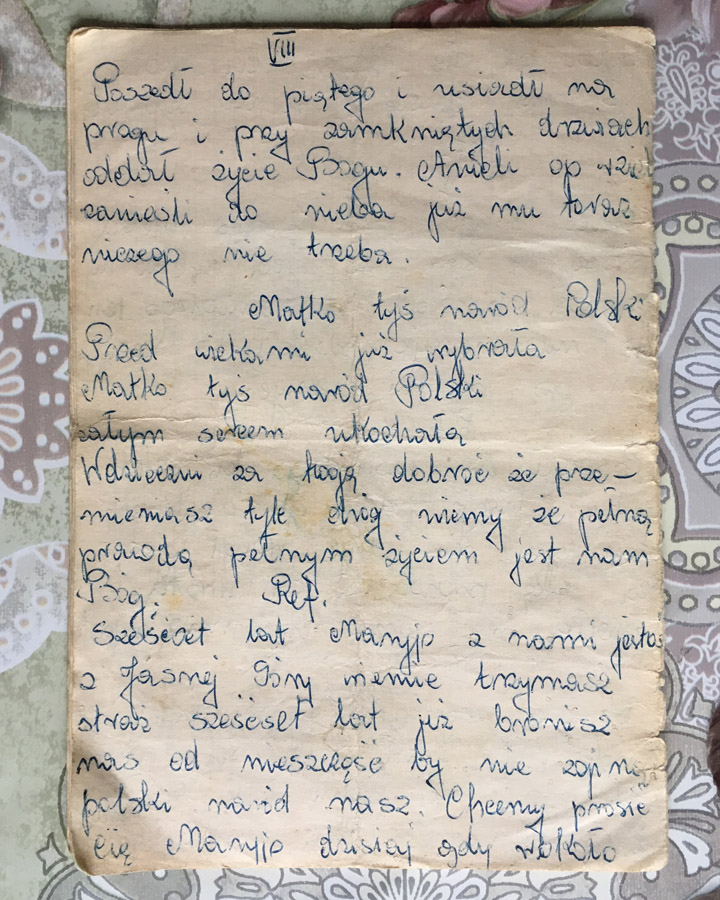 VIII
Poszedł do piątego i usiadł na
progu i przy zamkniętych drzwiach
oddał życie Bogu. Anieli op
zanieśli do nieba już mu teraz
niczego nie trzeba.
Matko tyś naród Polski
Przed wiekami już wybrała
Matko tyś naród Polski
całym sercem ukochała
Wdzięczni za twoją dobroć że prze-
mieniasz tyle dróg wiemy że pełną
prawdą pełnym życiem jest nam
Bóg; Ref.
Sześćset lat Maryjo z nami jesteś
z Jasnej Góry wiernie trzymasz
straż sześćset lat już bronisz
nas od nieszczęść by nie zginął
polski naród nasz. Chcemy prosić
Cię Maryjo dzisiaj gdy wokoło